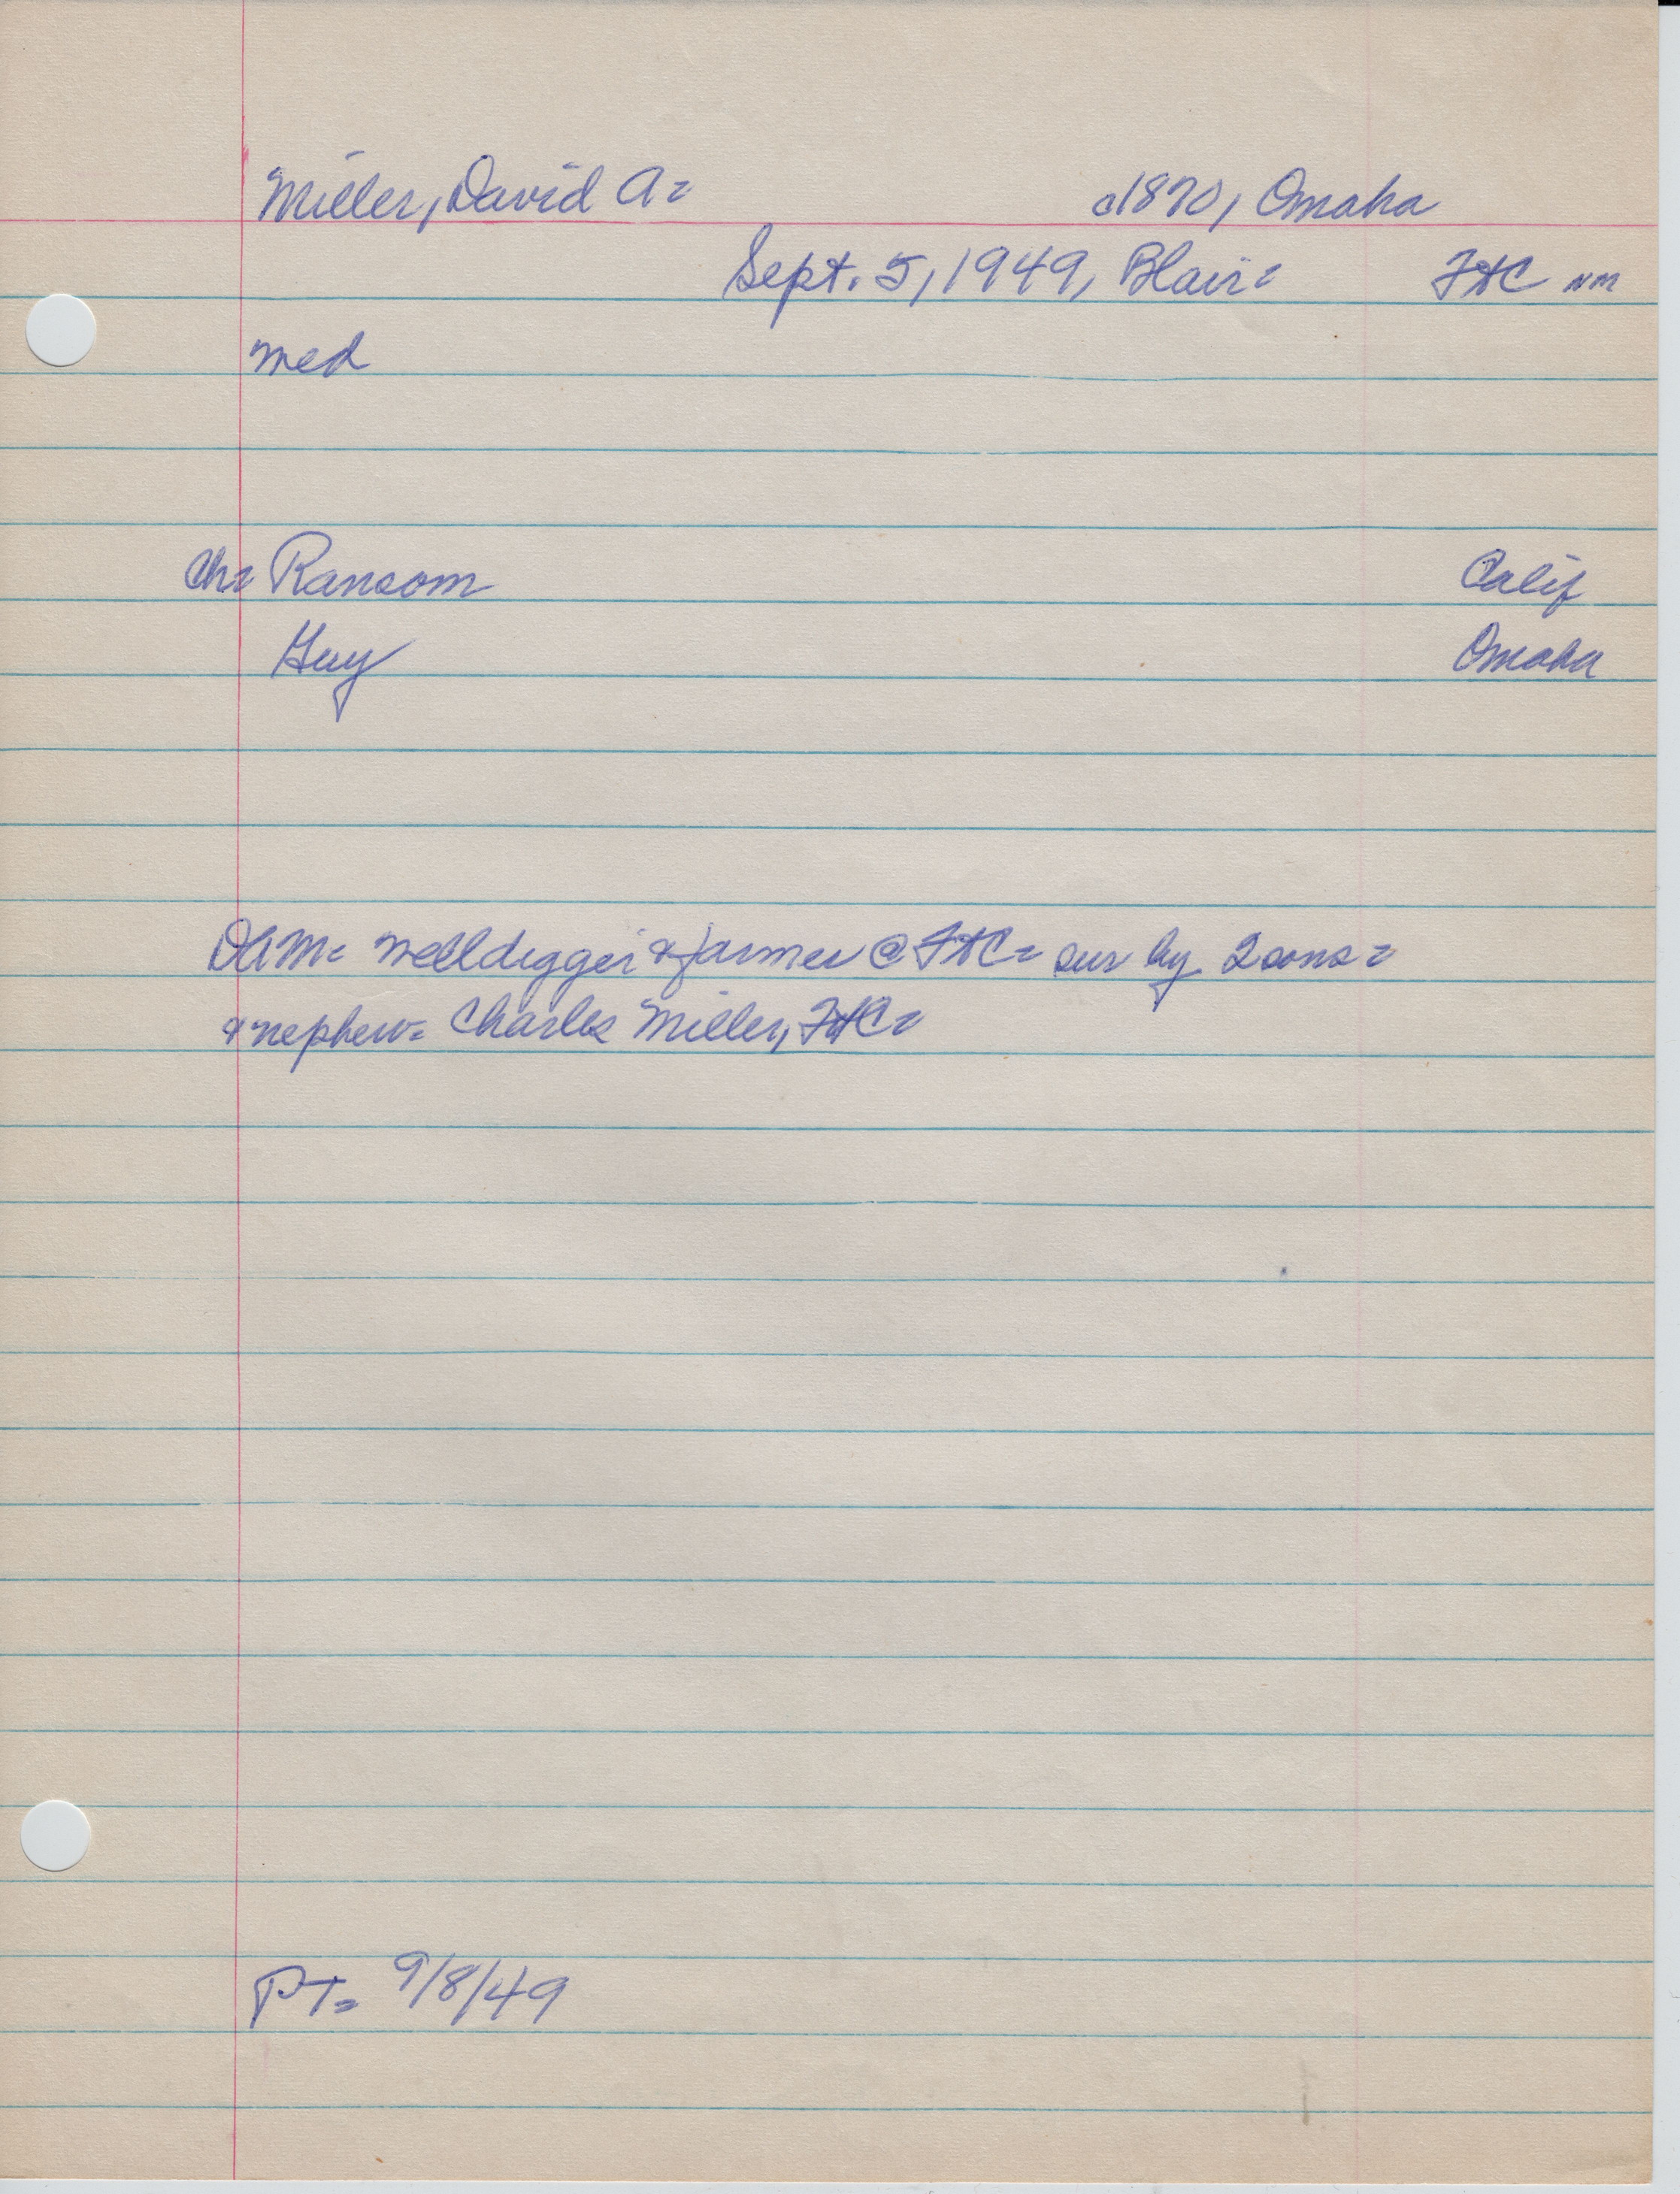 Miller, David A= c1870, Omaha
Sept. 5, 1949, Blair= FtC NM
med
Ch= Ransom Calif
Guy Omaha
DAM= welldigger & farmer @ FtC= sur by 2 sons=
& nephew= Charles Miller, FtC=
PT= 9/8/49